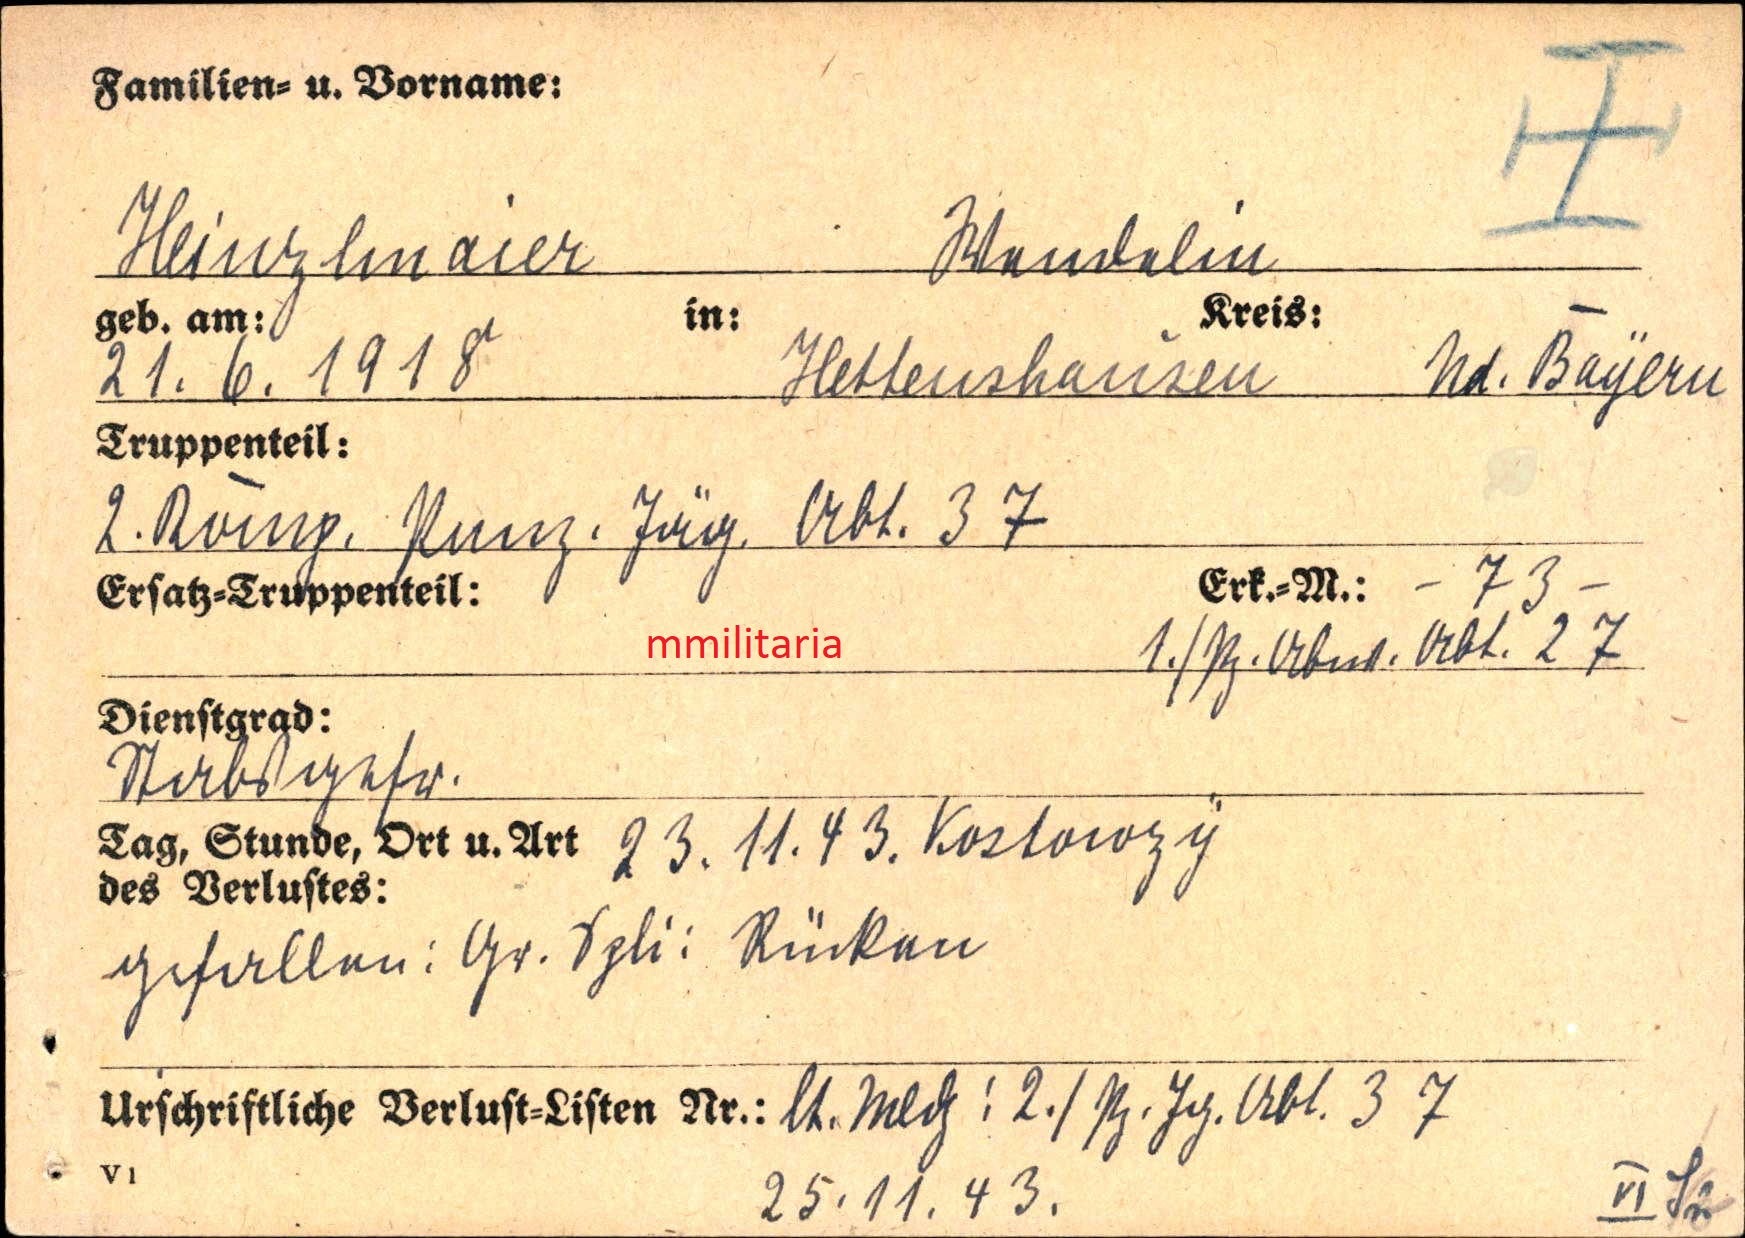 Familien- u. Vorname:
Heinzlmaier Wendelin
geb. am: in: Kreis:
21. 6. 1918 Hettenshausen Nd. Bayern
Truppenteil:
2. Komp. Panz. Jäg. Abt. 37
Ersatz-Truppenteil: Erk.-M.: - 73 -
mmilitaria 1./Pz. Abw. Abt. 27
Dienstgrad:
Stabsgefr.
Tag, Stunde, Ort u. Art 23. 11. 43. Kostowzy
des Verlustes:
gefallen: Gr. Spli: Rücken
Urschriftliche Verlust-Listen Nr.: lt. Meldg: 2./Pz. Jg. Abt. 37
V 1 25. 11. 43.
VI